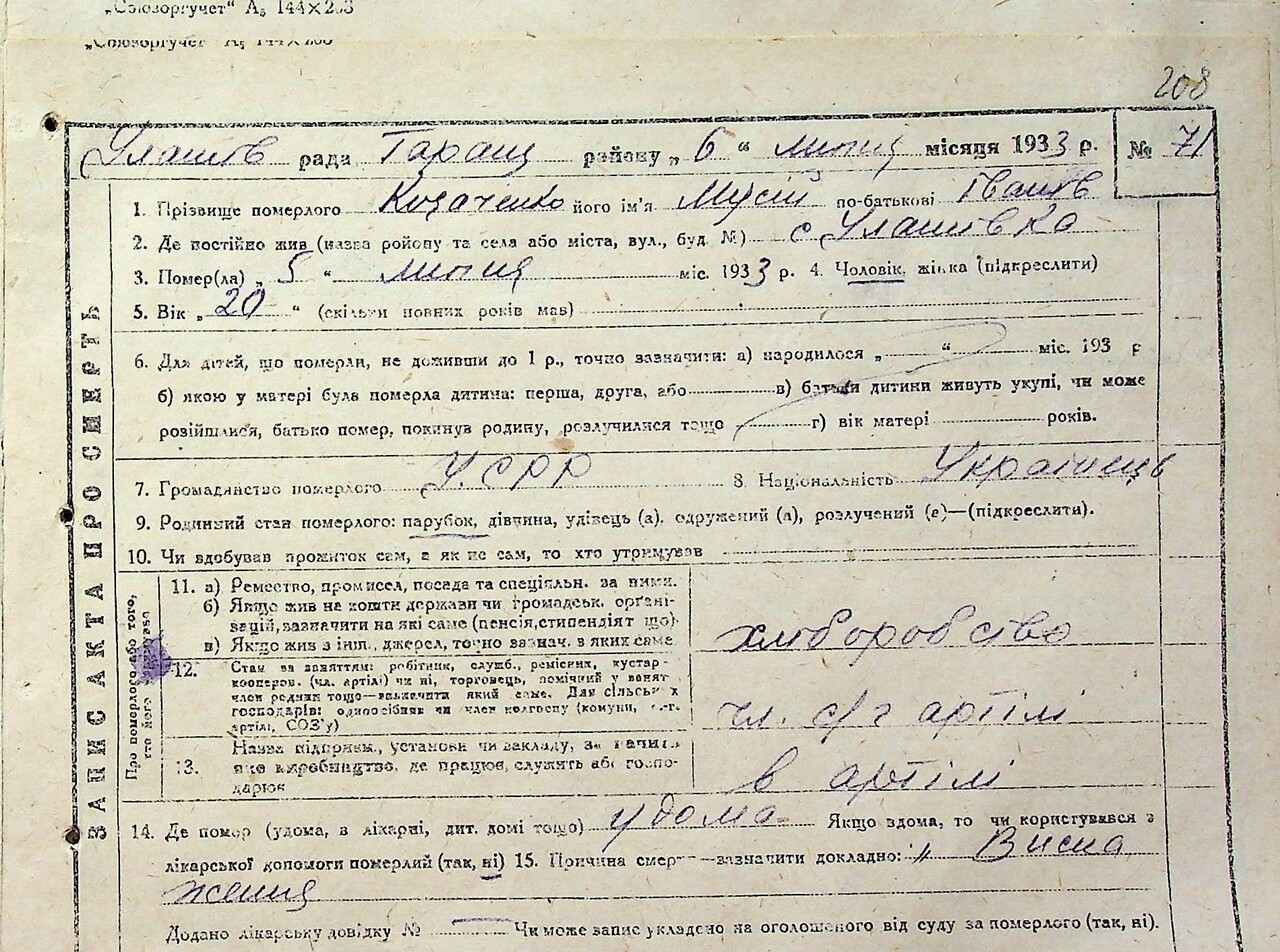 „Союзоргучет“ А₅ 144×203
„Союзоргучет“ А₅ 144×203
208
Улашів рада Таращ району „ 6 “ липня місяця 1933 р. № 71
1. Прізвище померлого Козаченко його ім'я Мусій по-батькові Іванів
2. Де постійно жив (назва ройону та села або міста, вул., буд. №) с Улашівка
3. Помер(ла) „ 5 “ липня міс. 1933 р. 4. Чоловік, жінка (підкреслити)
5. Вік „ 20 “ (скільки повних років мав)
6. Для дітей, що померли, не доживши до 1 р., точно зазначити: а) народилося „ “ міс. 193 р
б) якою у матері була померла дитина: перша, друга, або в) батьки дитини живуть укупі, чи може
розійшлися, батько помер, покинув родину, розлучилися тощо г) вік матері років.
7. Громадянство померлого УСРР 8. Національність Українець
9. Родинний стан померлого: парубок, дівчина, удівець (а), одружений (а), розлучений (е)—(підкреслити).
10. Чи вдобував прожиток сам, а як не сам, то хто утримував
ЗАПИС АКТА ПРО СМЕРТЬ
Про померлого або того, хто його
11. а) Ремество, промисел, посада та спеціяльн. за ними.
б) Якщо жив на кошти держави чи громадськ. орґані-
зацій, зазначити на які саме (пенсія, стипендіят що)
в) Якщо жив з інш. джерел, точно зазнач. в яких саме
хліборобство
12. Стан за заняттям: робітник, служб., ремісник, кустар-
кооперов. (чл. артілі) чи ні, торговець, помічний у занят
член родини тощо—зазначити який саме. Для сільських
господарів: одноосібник чи член колгоспу (комуни, с.-г.
артілі, СОЗ'у)
чл. с/г артілі
13. Назва підприєм., установи чи закладу, зазначить
яке виробництво, де працює, служить або госпо-
дарює
в артілі
14. Де помер (удома, в лікарні, дит. домі тощо) удома Якщо вдома, то чи користувався з
лікарської допомоги померлий (так, ні) 15. Причина смерти—зазначити докладно: „ Висна
ження
Додано лікарську довідку № — Чи може запис укладено на оголошеного від суду за померлого (так, ні).